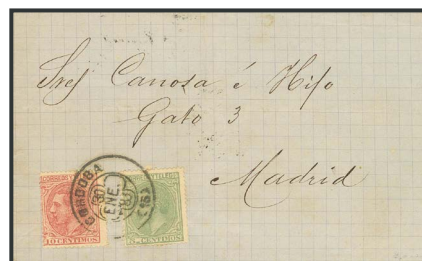 Sres Canosa é Hijo
Gato 3
Madrid
CORDOBA
ENE.
10 CENTIMOS